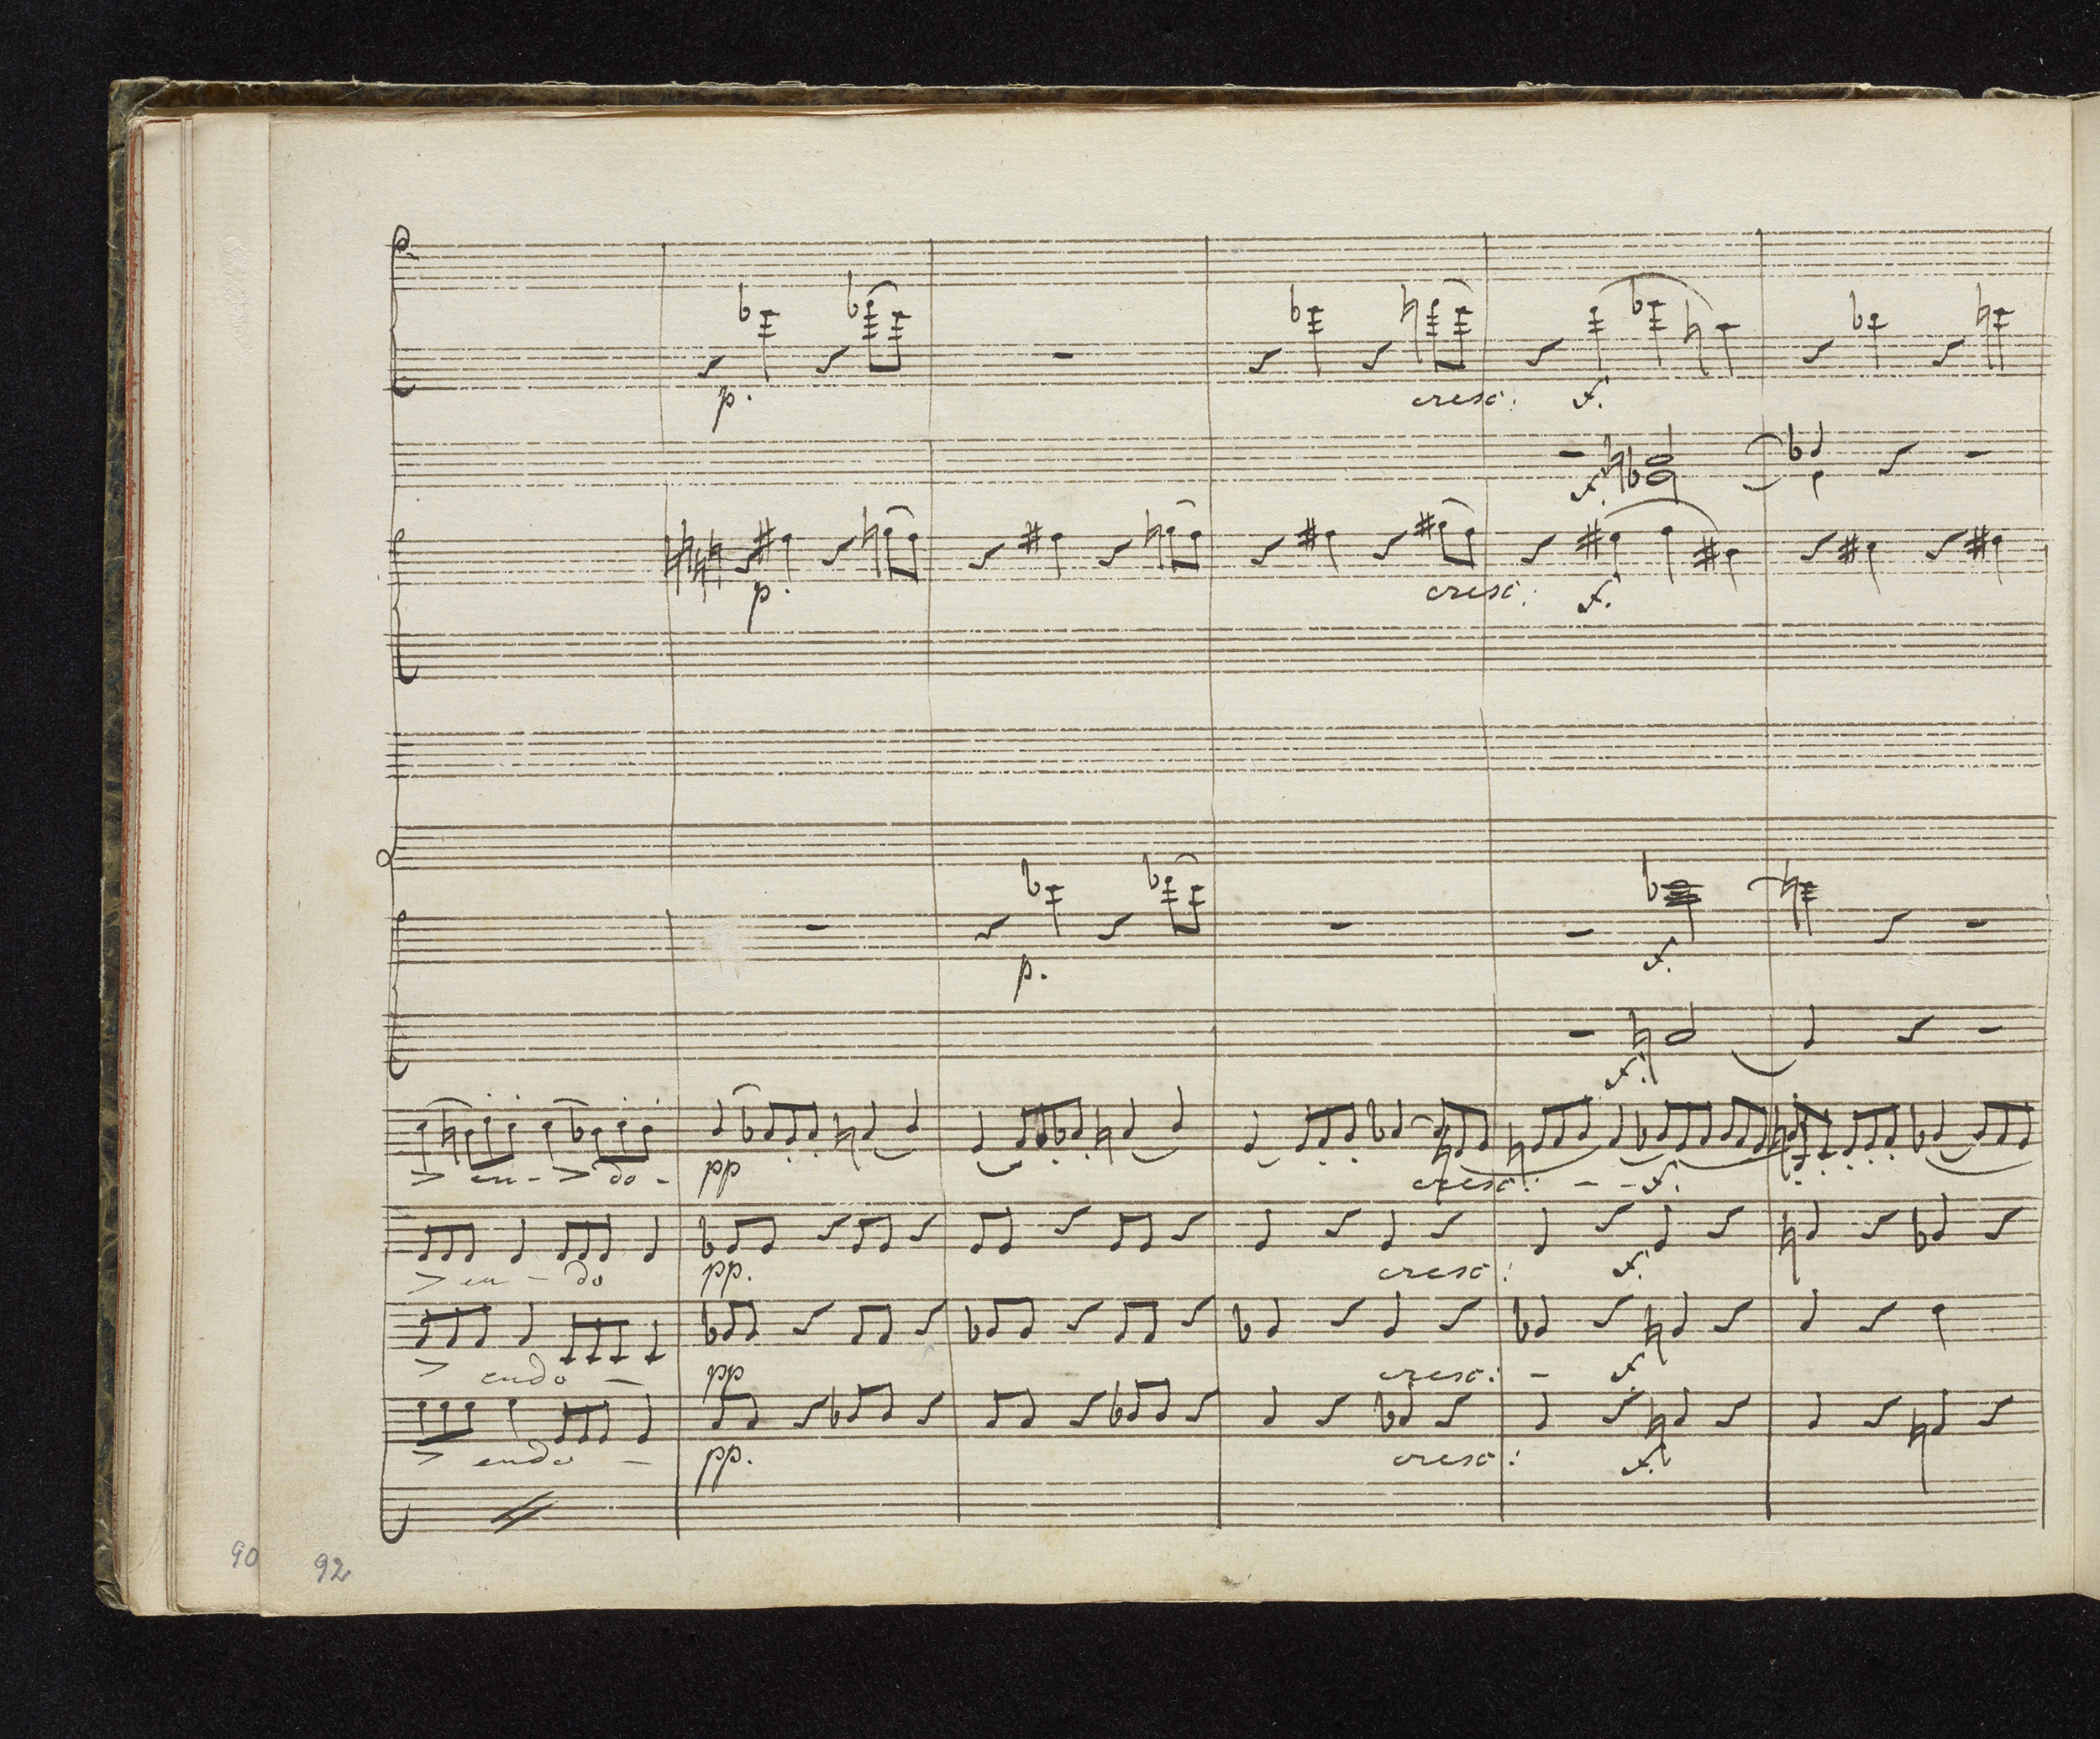 p. cresc: f.
f.
p. cresc: f.
p. f.
f.
> en - > do - pp cresc: - - f.
> en - do pp. cresc: f.
> endo - pp cresc: - f.
> endo - pp. cresc: f.
90 92